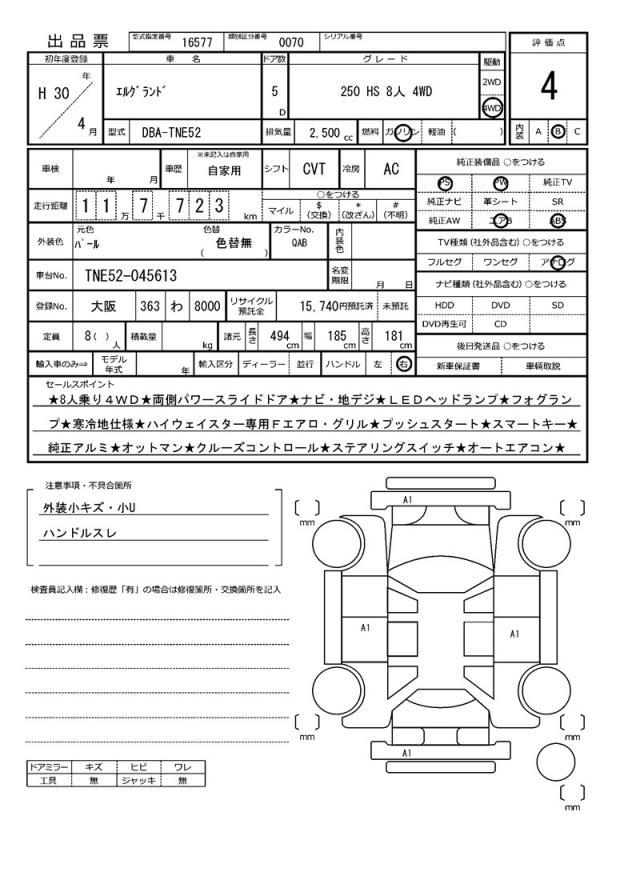 出品票 型式指定番号 16577 類別区分番号 0070 シリアル番号
評価点
4
内装 A B C
初年度登録 車名 ドア数 グレード 駆動
H 30 年 4 月
ｴﾙｸﾞﾗﾝﾄﾞ
5 D
250 HS 8人 4WD
2WD
4WD
型式 DBA-TNE52 排気量 2,500 cc 燃料 ガソリン 軽油 ( )
車検 年 月 車歴 ※未記入は自家用 自家用 シフト CVT 冷房 AC
走行距離 1 1 万 7 千 7 2 3 km
○をつける
マイル $ (交換) * (改ざん) # (不明)
外装色 元色 ﾊﾟｰﾙ 色替 ( 色替無 ) カラーNo. QAB 内装色
車台No. TNE52-045613 名変期限 月 日
登録No. 大阪 363 わ 8000 リサイクル預託金 15,740円預託済 未預託
定員 8( ) 人 積載量 kg 諸元 長さ 494 cm 幅 185 cm 高さ 181 cm
輸入車のみ⇒ モデル年式 年 輸入区分 ディーラー 並行 ハンドル 左 右
純正装備品 ○をつける
PS PW 純正TV
純正ナビ 革シート SR
純正AW エアB ABS
TV種類 (社外品含む) ○をつける
フルセグ ワンセグ アナログ
ナビ種類 (社外品含む) ○をつける
HDD DVD SD
DVD再生可 CD
後日発送品 ○をつける
新車保証書 車輌取説
セールスポイント
★8人乗り４ＷＤ★両側パワースライドドア★ナビ・地デジ★ＬＥＤヘッドランプ★フォグラン
プ★寒冷地仕様★ハイウェイスター専用Ｆエアロ・グリル★プッシュスタート★スマートキー★
純正アルミ★オットマン★クルーズコントロール★ステアリングスイッチ★オートエアコン★
注意事項・不具合箇所
外装小キズ・小U
ハンドルスレ
検査員記入欄：修復歴「有」の場合は修復箇所・交換箇所を記入
ドアミラー キズ ヒビ ワレ
工具 無 ジャッキ 無
A1
[ ] mm
[ ] mm
A1
A1
[ ] mm
[ ] mm
A1
[ ] mm